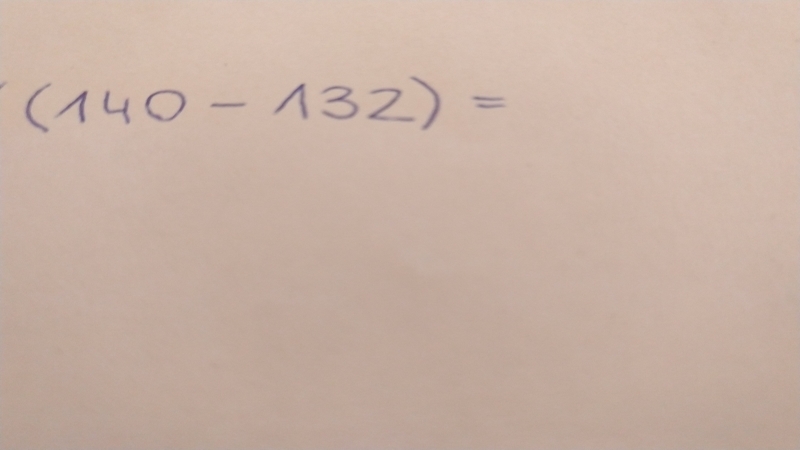 (140 - 132) =